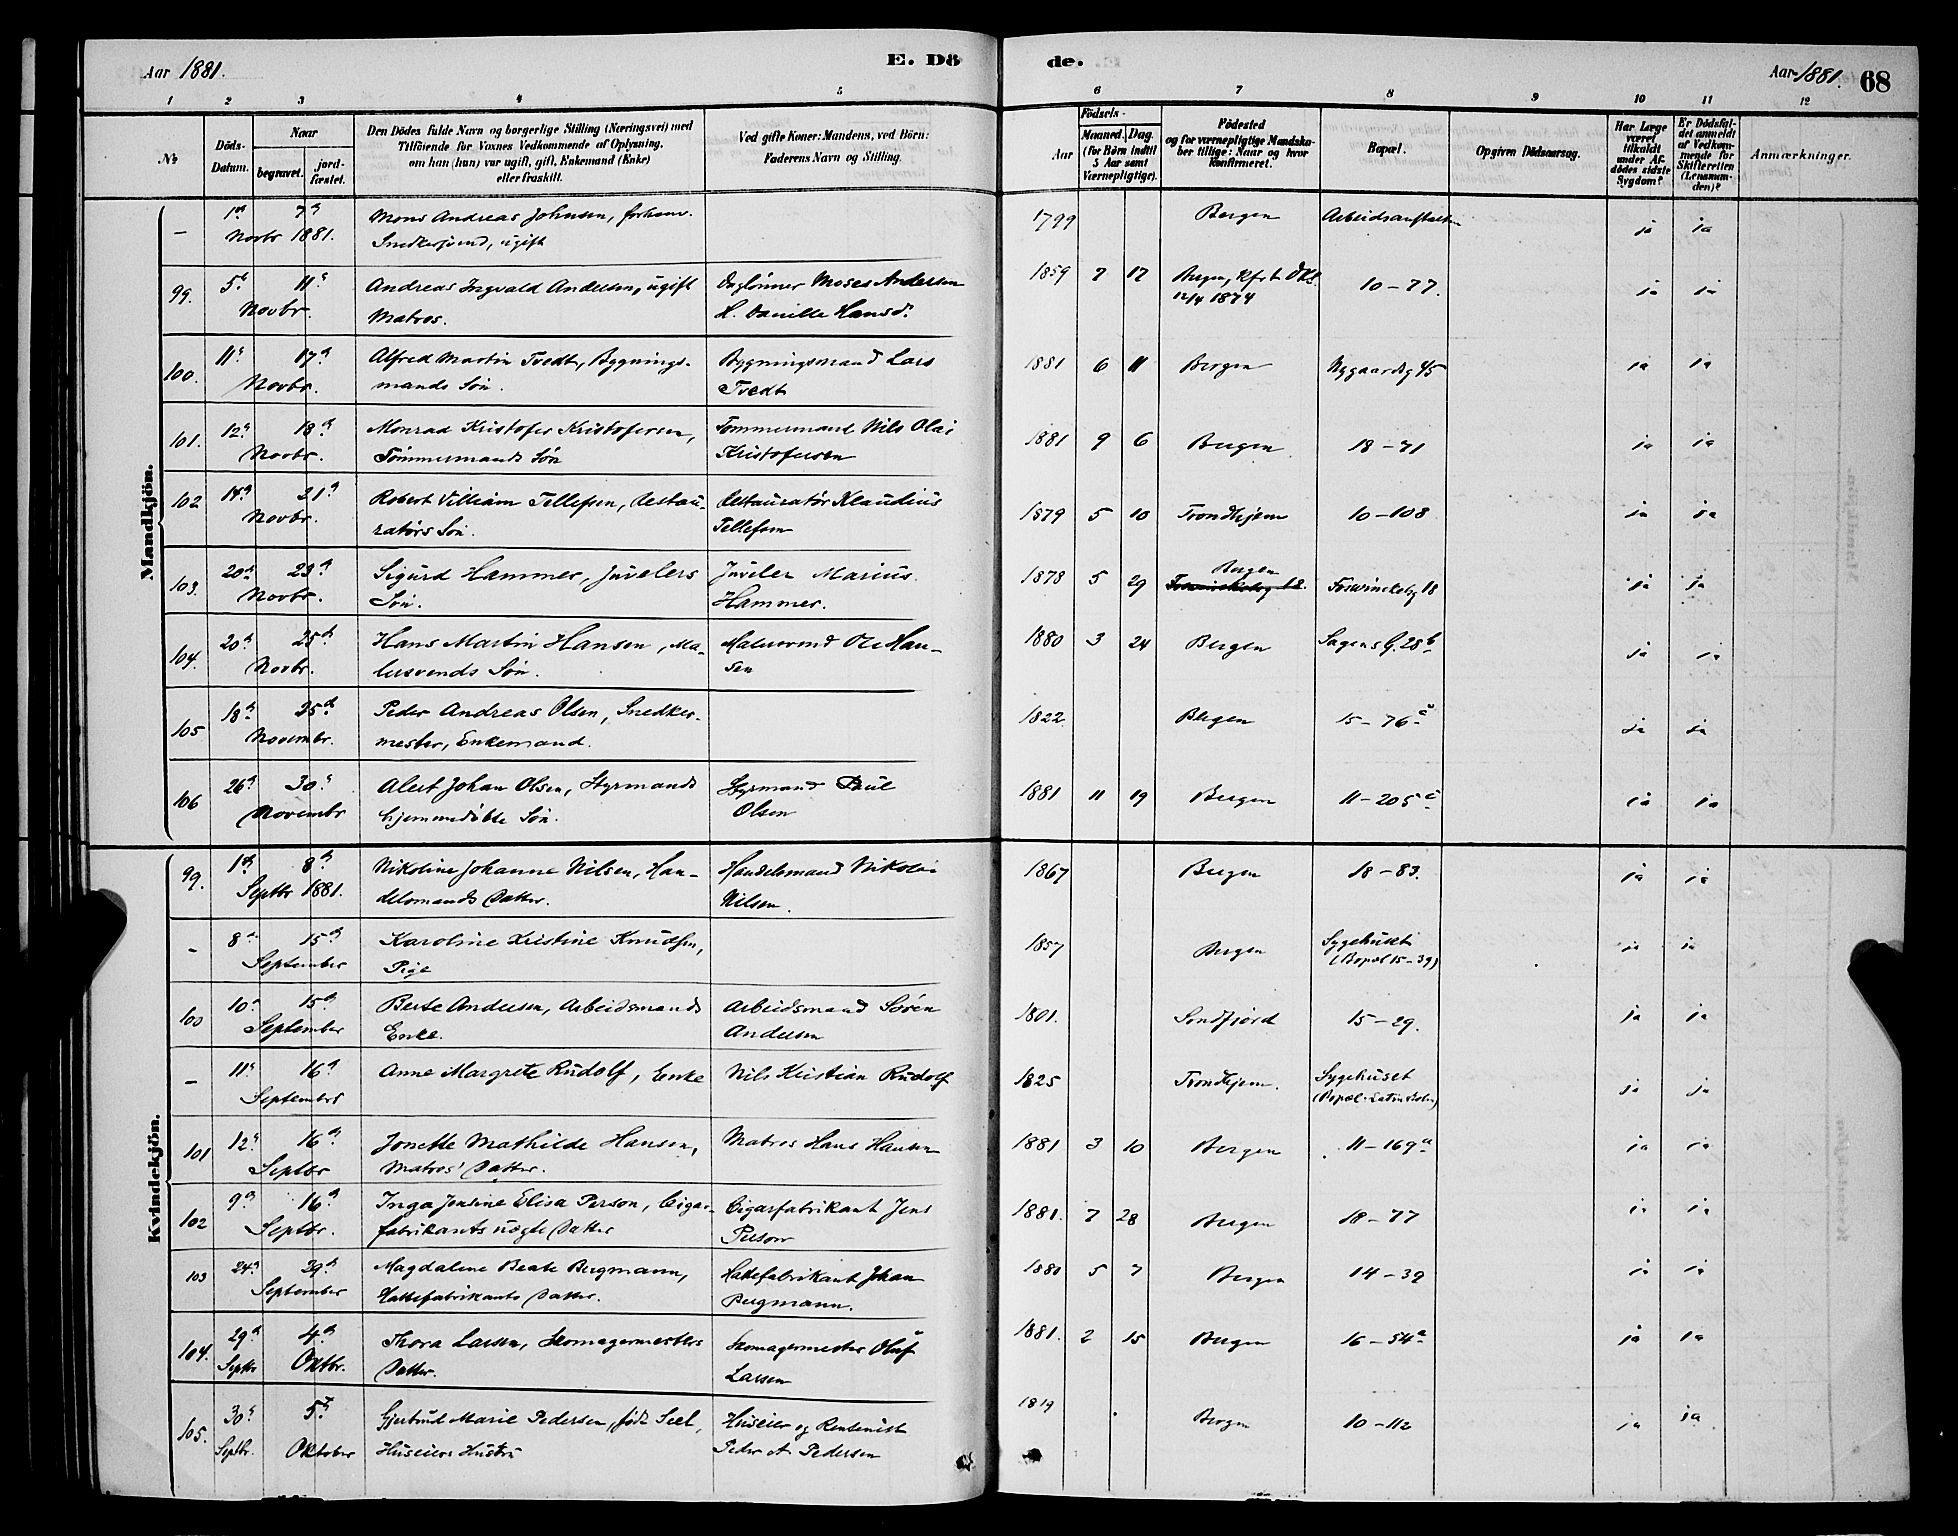 Aar 1881.
E. Dö
de.
Aar 1881.
68
1 2 3 4 5 6 7 8 9 10 11 12
№
Döds-Datum.
Naar
begravet.
jordfæstet.
Den Dödes fulde Navn og borgerlige Stilling (Næringsvei) med
Tilföiende for Voxnes Vedkommende af Oplysning,
om han (hun) var ugift, gift, Enkemand (Enke)
eller fraskilt.
Ved gifte Koner: Mandens, ved Börn:
Faderens Navn og Stilling.
Födsels-
Aar
Maaned. Dag.
(for Börn indtil
5 Aar samt
Værnepligtige).
Födested
og for værnepligtige Mandska-
ber tillige: Naar og hvor
konfirmeret.
Bopæl.
Opgiven Dödsaarsag.
Har Læge
været
tilkaldt
under Af-
dödes sidste
Sygdom?
Er Dödsfal-
det anmeldt
af Vedkom-
mende for
Skifteretten
(Lensman-
den)?
Anmærkninger.
Mandkjön.
– 1ste 7de Mons Andreas Johnsen, forhenv. 1799 Bergen Arbeidsanstalten ja ja
Novbr 1881. Snedkersvend, ugift
99. 5te 11te Andreas Ingvald Andersen, ugift Daglönner Moses Andersen 1859 7 17 Bergen, Kfrt Dks. 10-77. ja ja
Novbr. Matros. H. Danille Hansd. 12/4 1874
100. 11te 17de Alfred Martin Tvedt, Bygnings- Bygningsmand Lars 1881 6 11 Bergen Nygaardsg 45 ja ja
Novbr. mands Sön. Tvedt
101. 12te 18de Monrad Kristofer Kristofersen, Tömmermand Nils Olai 1881 9 6 Bergen 18-71 ja ja
Novbr. Tömmermands Sön Kristofersen
102 14de 21de Robert Villiam Tellefsen, Restau- Restauratör Klaudius 1879 5 10 Trondhjem 10-108 ja ja
Novbr. ratörs Sön. Tellefsen
103. 20de 23de Sigurd Hammer, Juvelers Juveler Marius 1878 5 29 Bergen Foswinckelsg 18 ja ja
Novbr. Sön. Hammer.
104. 20de 25de Hans Martin Hansen, Ma- Malersvend Ole Han- 1880 3 24 Bergen Sagens G. 28b ja ja
Novbr. lersvends Sön. sen
105 18de 25de Peder Andreas Olsen, Snedker- 1822 Bergen 15-76c ja ja
Novembr. mester, Enkemand.
106 26de 30te Alert Johan Olsen, Styrmands Styrmand Paul 1881 11 19 Bergen 11-205c ja ja
Novembr hjemmedöbte Sön. Olsen
Kvindekjön.
99. 1ste 8de Nikoline Johanne Nilsen, Han- Handelsmand Nikolai 1867 Bergen 18-83. ja ja
Septbr 1881. delsmands Datter. Nilsen.
– 8de 15de Karoline Kristine Knudsen, 1857 Bergen Sygehuset ja ja
September Pige (Bopæl 15-39)
100 10de 15de Berte Andersen, Arbeidsmands Arbeidsmand Sören 1801. Söndfjord 15-29. ja ja
September Enke. Andersen
– 11te 16de Anne Margrete Rudolf, Enke Nils Kristian Rudolf 1825 Trondhjem. Sygehuset ja ja
September (Bopæl. Latinskolen)
101 12te 16de Jonette Mathilde Hansen, Matros Hans Hansen 1881 3 10 Bergen 11-169a ja ja
Septbr Matros' Datter.
102 9de 16de Inga Jensine Elisa Person, Cigar- Cigarfabrikant Jens 1881. 7 28 Bergen 18-77 ja ja
Septbr. fabrikants uægte Datter Person
103 24de 29de Magdalene Beate Bergmann, Hattefabrikant Johan 1880 5 7 Bergen 14-39 ja ja
September Hattefabrikants Datter. Bergmann.
104. 29de 4de Thora Larsen, Skomagermesters Skomagermester Oluf 1881. 2 15 Bergen 16-54a ja ja
Septbr Oktbr. Datter. Larsen
105. 30te 5te Gjertrud Marie Pedersen, föd Seel, Huseier og Rentenist 1819 Bergen 10-112 ja ja
Septbr. Oktober Huseiers Hustru Peder A. Pedersen